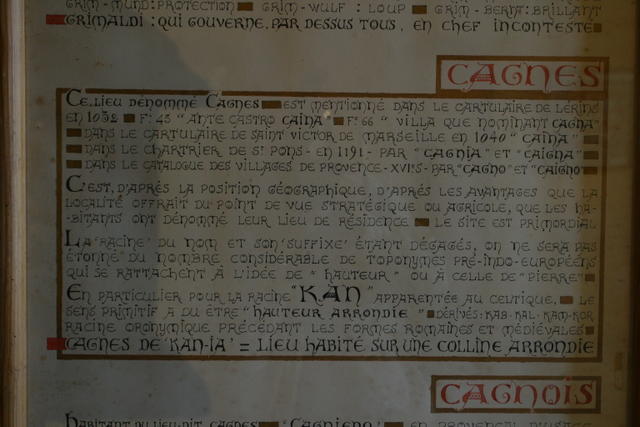 GRIM - MUND: PROTECTION ■ GRIM - WULF : LOUP ■ GRIM - BERHT: BRILLANT
GRIMALDI : QUI GOUVERNE, PAR DESSUS TOUS, EN CHEF INCONTESTE
CAGNES
CE LIEU DÉNOMMÉ CAGNES ■ EST MENTIONNÉ DANS LE CARTULAIRE DE LÉRINS
EN 1032 ■ F°: 45 "ANTE CASTRO CAÎNA" ■ F° 66 " VILLA QUE NOMINANT CAGNA"
■ DANS LE CARTULAIRE DE SAINT VICTOR DE MARSEILLE EN 1040 " CAINA" ■
■ DANS LE CHARTRIER DE ST PONS - EN 1191 - PAR "CAGNIA" ET "CAIGNA" ■
■ DANS LE CATALOGUE DES VILLAGES DE PROVENCE - XVI°S - PAR "CAGNO" ET "CAIGNO" ■
C'EST, D'APRÉS LA POSITION GÉOGRAPHIQUE, D'APRÉS LES AVANTAGES QUE LA
LOCALITÉ OFFRAIT DU POINT DE VUE STRATÉGIQUE OU AGRICOLE, QUE LES HA-
-BITANTS ONT DÉNOMMÉ LEUR LIEU DE RÉSIDENCE ■ LE SITE EST PRIMORDIAL
LA 'RACINE' DU NOM ET SON 'SUFFIXE' ÉTANT DÉGAGÉS, ON NE SERA PAS
ÉTONNÉ DU NOMBRE CONSIDÉRABLE DE TOPONYMES PRÉ-INDO-EUROPÉENS
QUI SE RATTACHENT À L'IDÉE DE " HAUTEUR " OU À CELLE DE "PIERRE"
EN PARTICULIER POUR LA RACINE "KAN" APPARENTÉE AU CELTIQUE, ■ LE
SENS PRIMITIF A DU ÊTRE "HAUTEUR ARRONDIE" ■ DÉRIVÉS: KAB. KAL. KAM. KOR
RACINE ORONYMIQUE PRÉCÉDANT LES FORMES ROMAINES ET MÉDIÉVALES ■
CAGNES DE 'KAN-IA' = LIEU HABITÉ SUR UNE COLLINE ARRONDIE
CAGNOIS
HABITANT DU LIEU-DIT, CAGNES ■ 'CAGNIENO' ■ EN PROVENÇAL